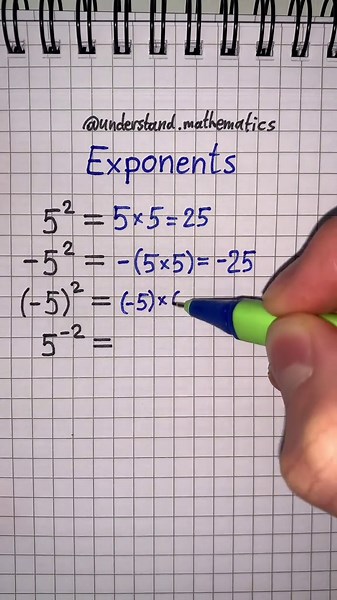 @understand.mathematics
Exponents
5² = 5×5 = 25
-5² = -(5×5) = -25
(-5)² = (-5)×(
5⁻² =